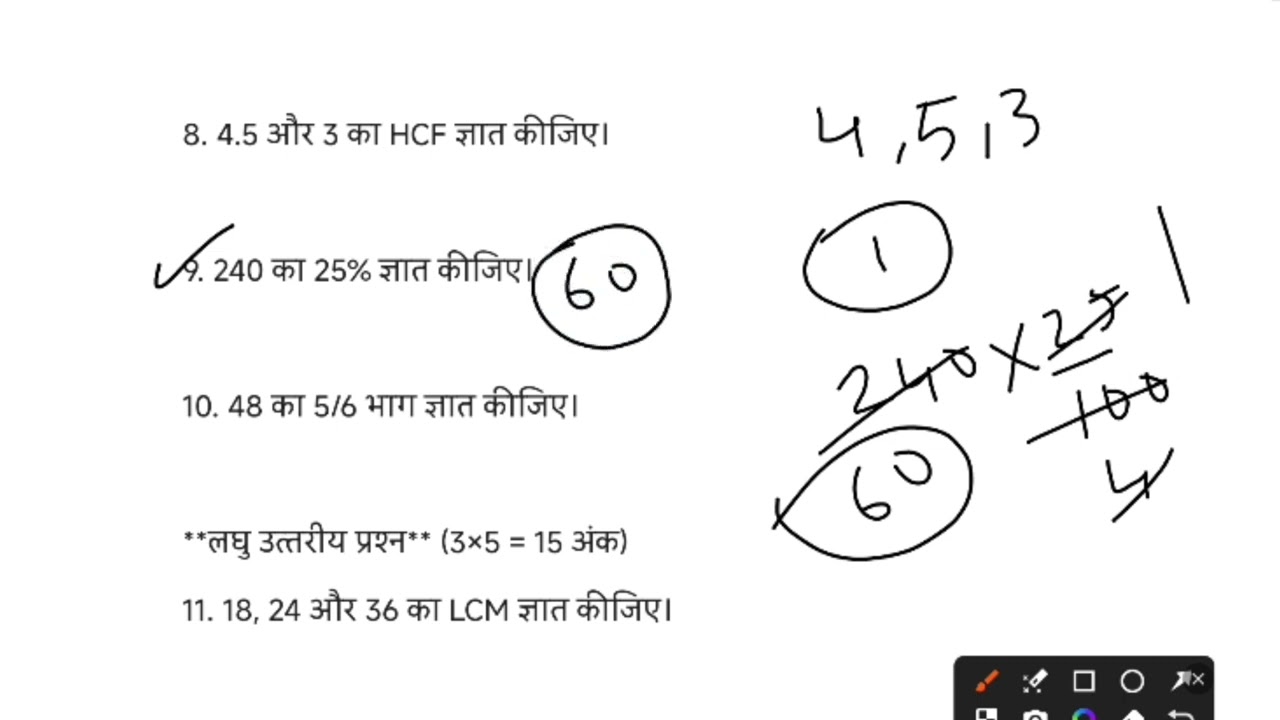 8. 4.5 और 3 का HCF ज्ञात कीजिए।
4,5,3
1
9. 240 का 25% ज्ञात कीजिए।
60
240 × 25
100
4
60
10. 48 का 5/6 भाग ज्ञात कीजिए।
**लघु उत्तरीय प्रश्न** (3×5 = 15 अंक)
11. 18, 24 और 36 का LCM ज्ञात कीजिए।